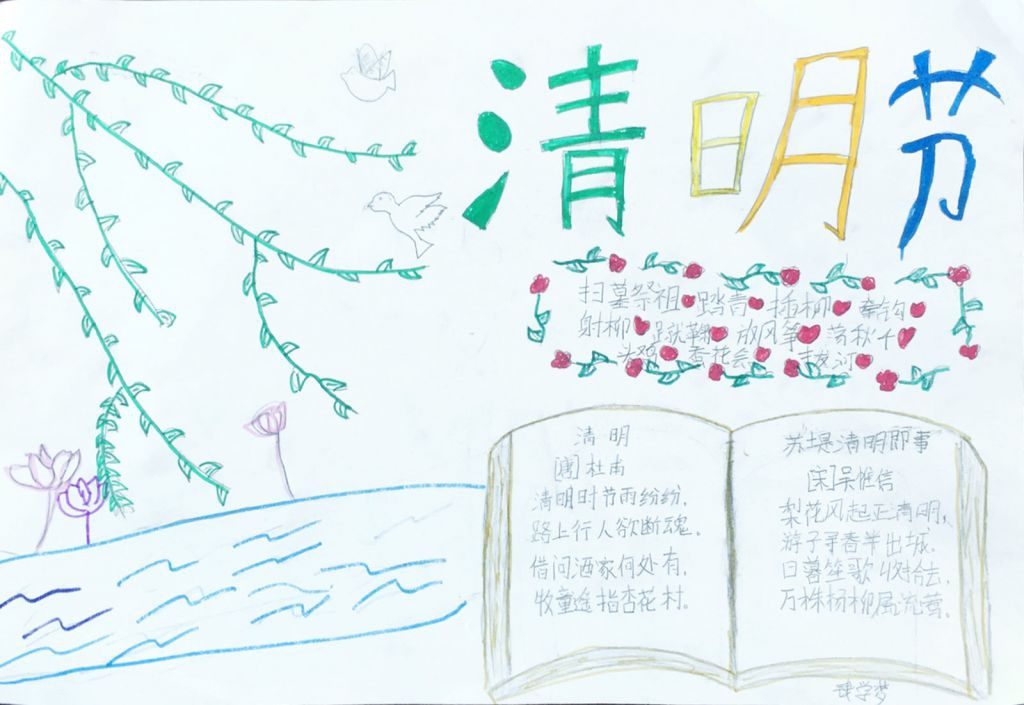 清明节
扫墓祭祖 踏青 插柳 牵钩
射柳 蹴鞠 放风筝 荡秋千
斗鸡 蚕花会
清明
[唐]杜甫
清明时节雨纷纷,
路上行人欲断魂。
借问酒家何处有,
牧童遥指杏花村。
苏堤清明即事
[宋]吴惟信
梨花风起正清明,
游子寻春半出城。
日暮笙歌收拾去,
万株杨柳属流莺。
学梦